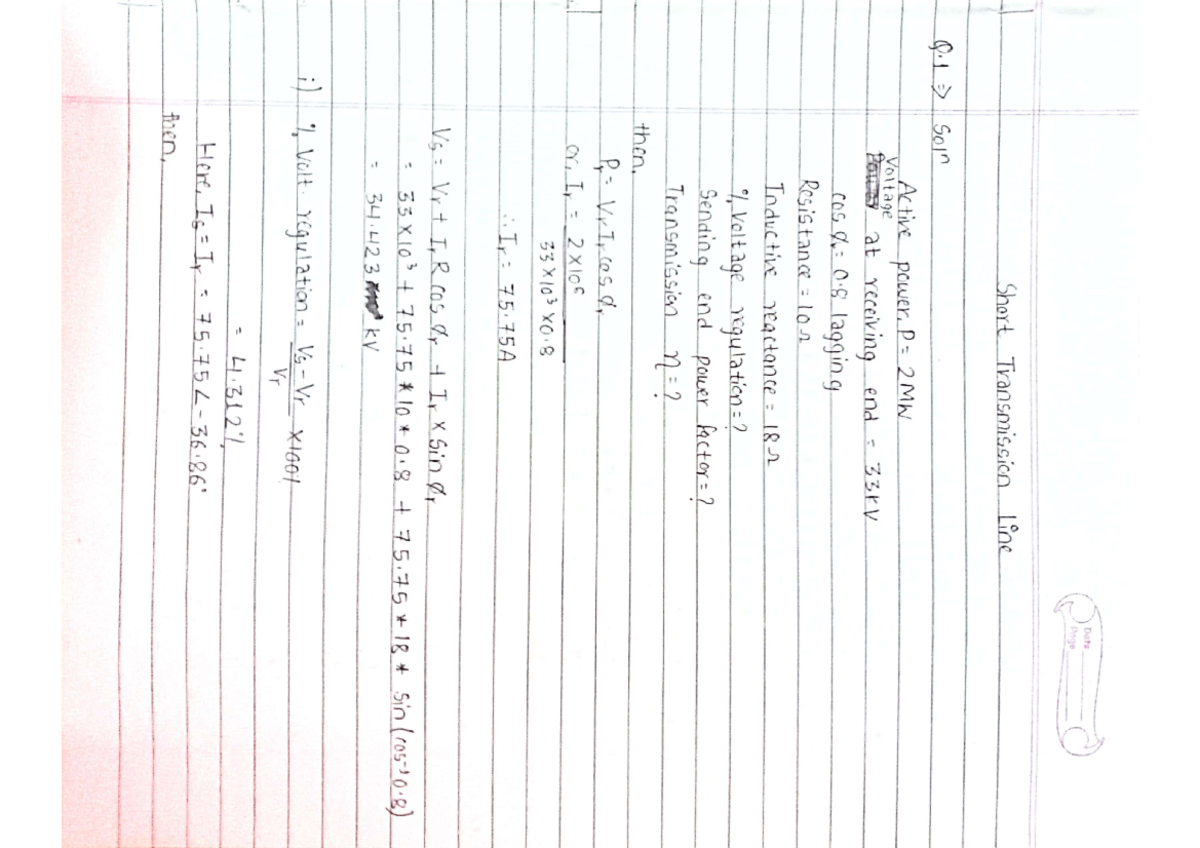 Date
Page
Short Transmission Line
Q.1 ⇒ Soln
Active power, P = 2 MW
Voltage at receiving end = 33kV
cos φr = 0.8 lagging
Resistance = 10 Ω
Inductive reactance = 18 Ω
% Voltage regulation = ?
Sending end power factor = ?
Transmission η = ?
then,
Pr = Vr Ir cos φr
or, Ir = 2×10⁶
33×10³×0.8
∴ Ir = 75.75A
Vs = Vr + Ir R cos φr + Ir X sin φr
= 33×10³ + 75.75 * 10 * 0.8 + 75.75 * 18 * sin(cos⁻¹0.8)
= 34.423 kV
i) % Volt regulation = Vs - Vr ×100%
Vr
= 4.312%
Here, Is = Ir = 75.75∠-36.86°
then,